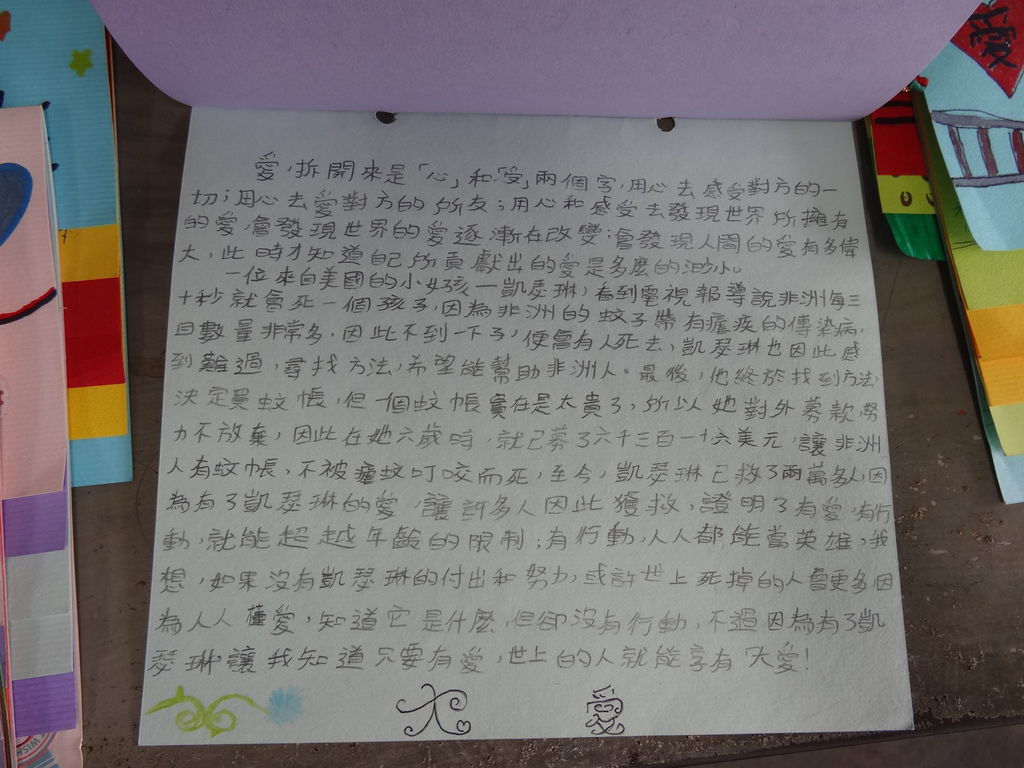 愛,拆開來是「心」和「受」兩個字,用心去感受對方的一
切;用心去愛對方的所有;用心和感受去發現世界所擁有
的愛,會發現世界的愛逐漸在改變;會發現人間的愛有多偉
大,此時才知道自己所貢獻出的愛是多麼的渺小。
一位來自美國的小女孩—凱瑟琳,看到電視報導說非洲每三
十秒就會死一個孩子,因為非洲的蚊子帶有瘧疾的傳染病,
目數量非常多,因此不到一下子,便會有人死去,凱瑟琳也因此感
到難過,尋找方法,希望能幫助非洲人。最後,他終於找到方法,
決定買蚊帳,但一個蚊帳實在是太貴了,所以她對外募款,努
力不放棄,因此在她六歲時,就已募了六千三百一十六美元,讓非洲
人有蚊帳,不被瘧蚊叮咬而死,至今,凱瑟琳已救了兩萬多人,因
為有了凱瑟琳的愛,讓許多人因此獲救,證明了有愛,有行
動,就能超越年齡的限制;有行動,人人都能當英雄,我
想,如果沒有凱瑟琳的付出和努力,或許世上死掉的人會更多,因
為人人懂愛,知道它是什麼,但卻沒有行動,不過因為有了凱
瑟琳讓我知道只要有愛,世上的人就能享有「大愛!
大 愛
愛